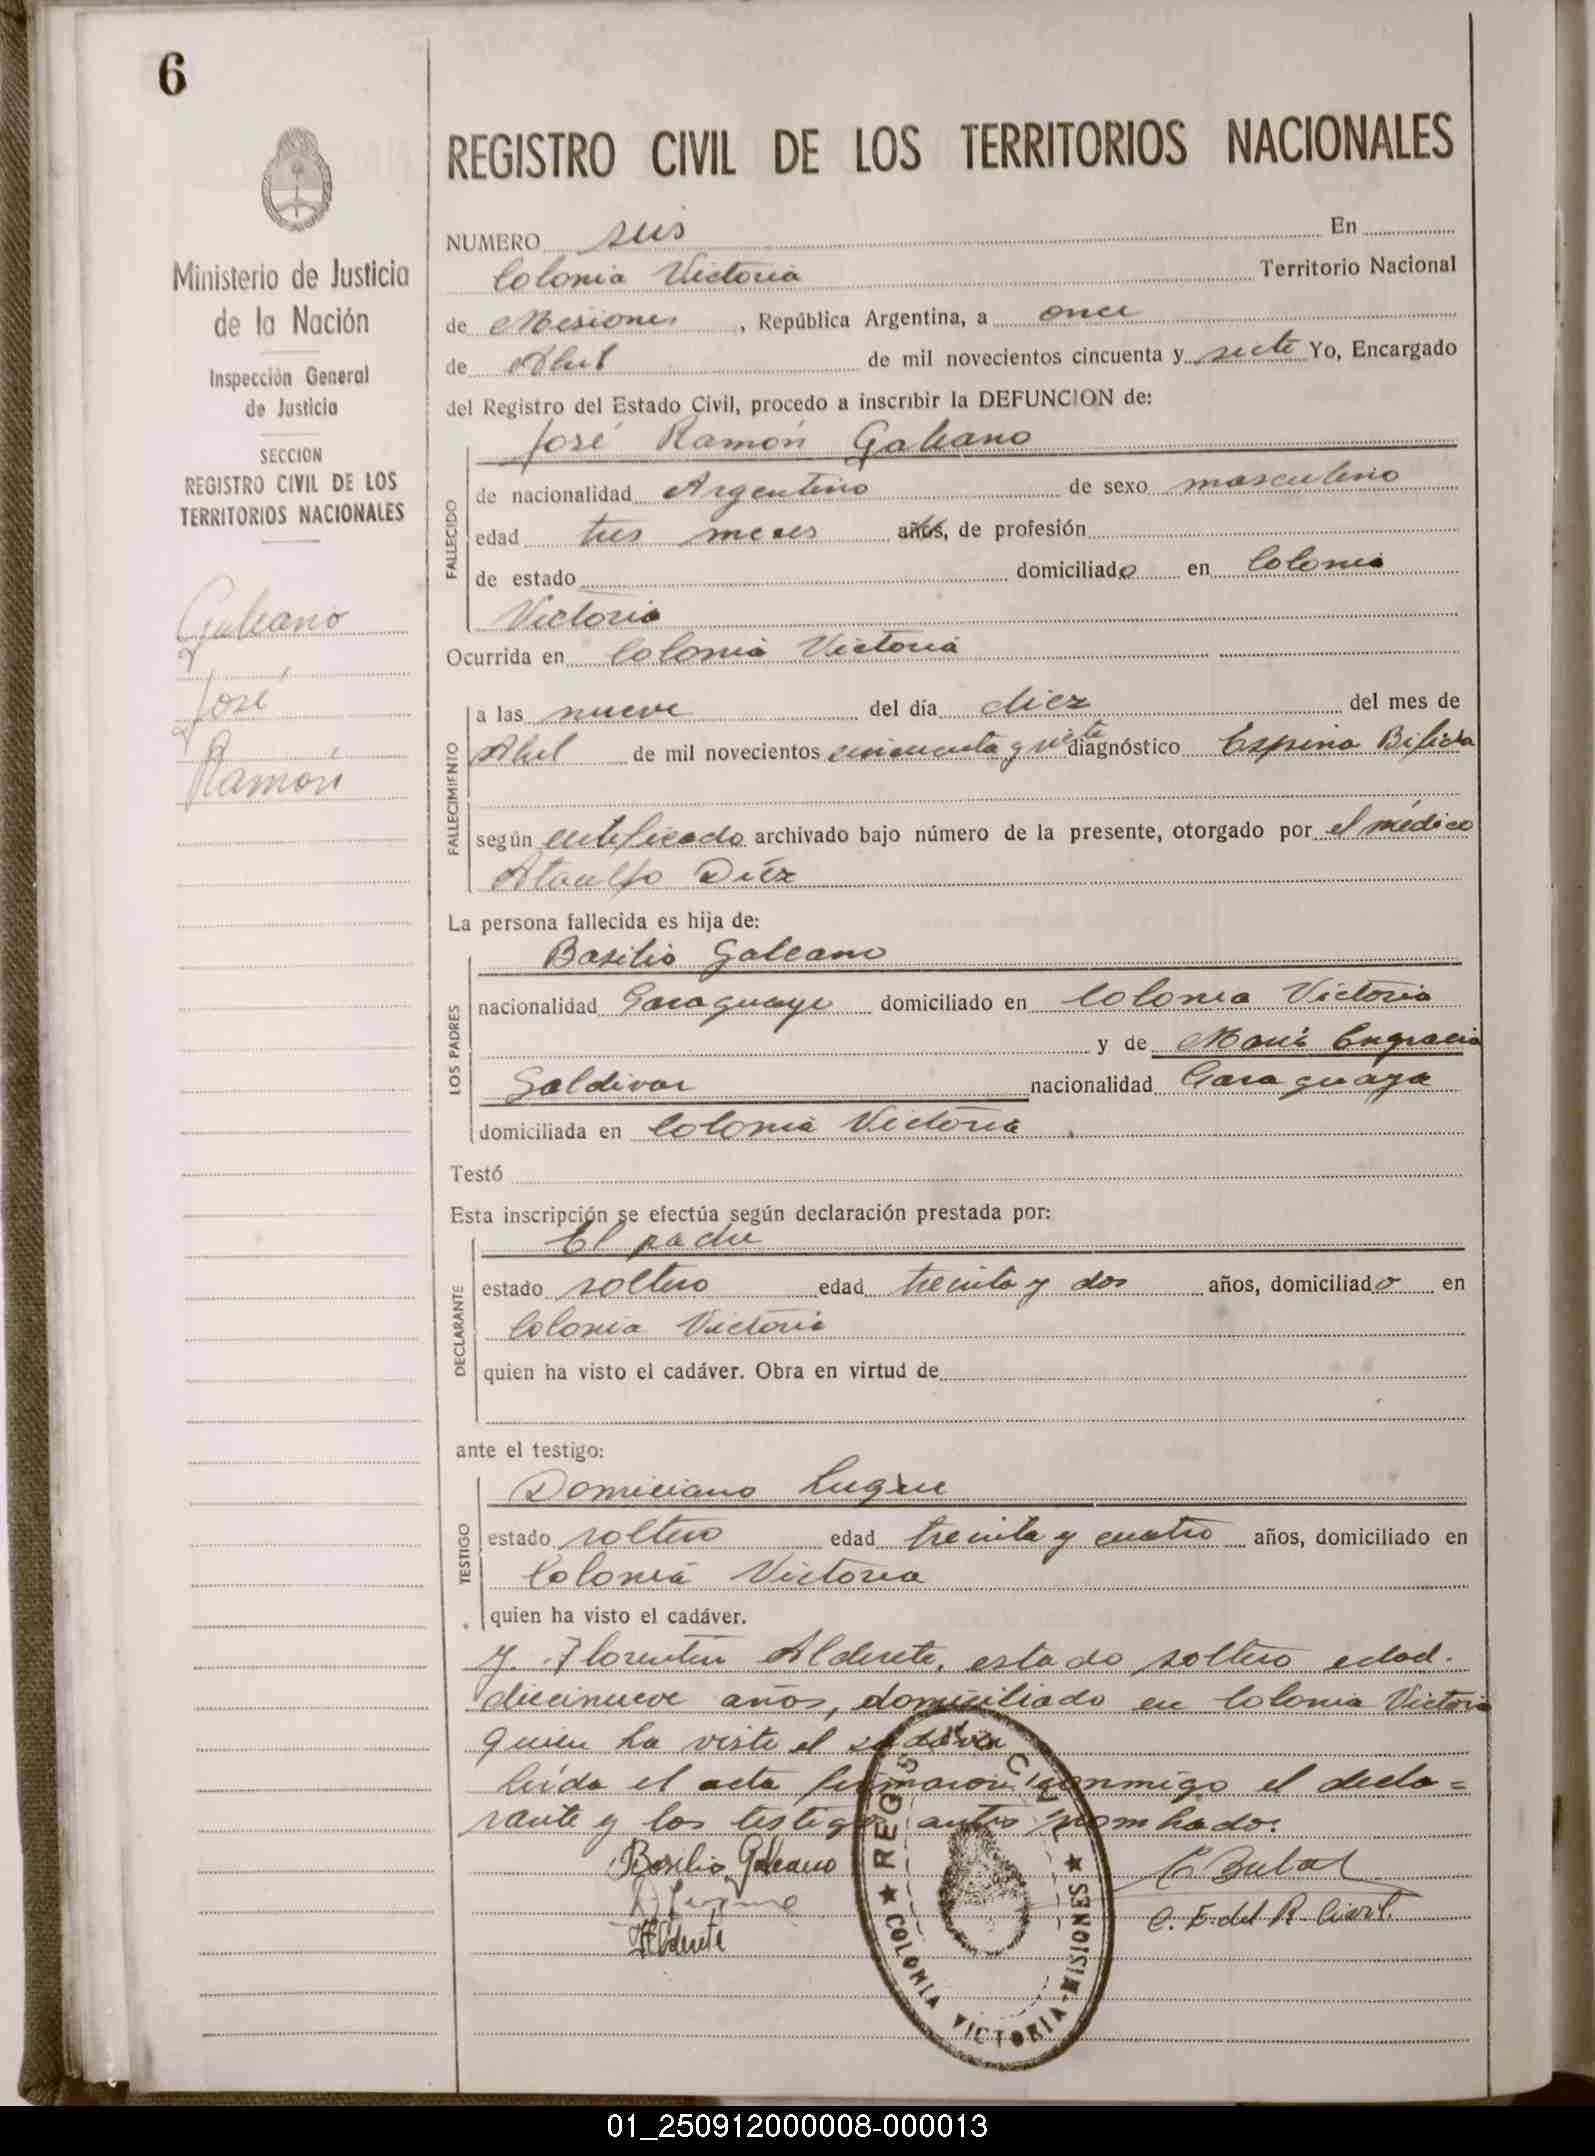 6
REGISTRO CIVIL DE LOS TERRITORIOS NACIONALES
Ministerio de Justicia
de la Nación
Inspección General
de Justicia
SECCION
REGISTRO CIVIL DE LOS
TERRITORIOS NACIONALES
Galeano
José
Ramón
NUMERO seis En
Colonia Victoria Territorio Nacional
de Misiones, República Argentina, a once
de Abril de mil novecientos cincuenta y siete Yo, Encargado
del Registro del Estado Civil, procedo a inscribir la DEFUNCION de:
José Ramón Galeano
FALLECIDO
de nacionalidad Argentino de sexo masculino
edad tres meses años, de profesión
de estado domiciliado en Colonia
Victoria
Ocurrida en Colonia Victoria
FALLECIMIENTO
a las nueve del día diez del mes de
Abril de mil novecientos cincuenta y siete diagnóstico Espina Bifida
según certificado archivado bajo número de la presente, otorgado por el médico
Ataulfo Diéz
La persona fallecida es hija de:
LOS PADRES
Basilio Galeano
nacionalidad Paraguayo domiciliado en Colonia Victoria
y de María Engracia
Saldivar nacionalidad Paraguaya
domiciliada en Colonia Victoria
Testó
Esta inscripción se efectúa según declaración prestada por:
DECLARANTE
El padre
estado soltero edad treinta y dos años, domiciliado en
Colonia Victoria
quien ha visto el cadáver. Obra en virtud de
ante el testigo:
TESTIGO
Domiciano Luque
estado soltero edad treinta y cuatro años, domiciliado en
Colonia Victoria
quien ha visto el cadáver.
Y. Florentin Alderete, estado soltero edad
diecinueve años, domiciliado en Colonia Victoria
quien ha visto el cadáver
Leída el acta firmaron conmigo el decla=
rante y los testigos antes nombrado.
Basilio Galeano
Alderete
C. E. del R. Civil.
REGISTRO CIVIL
★ COLONIA VICTORIA-MISIONES ★
01_250912000008-000013